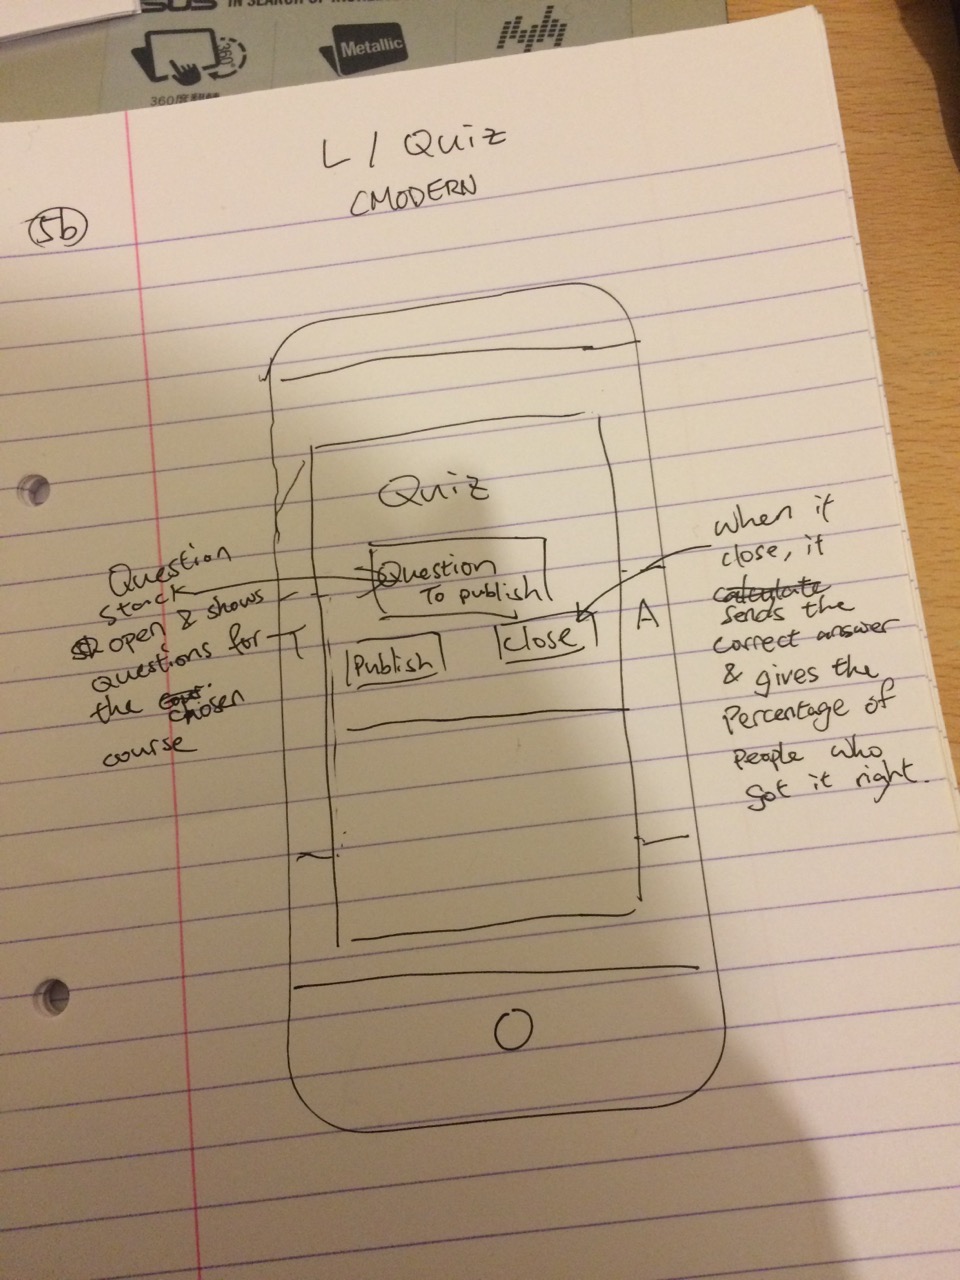 IN SEARCH OF
360°
Metallic
L / Quiz
CMODERN
5b
Quiz
Question
To publish
Publish
close
Question
Stack
open & shows
questions for
the
chosen
course
T
A
when it
close, it
calculate
sends the
correct answer
& gives the
Percentage of
People who
got it right.